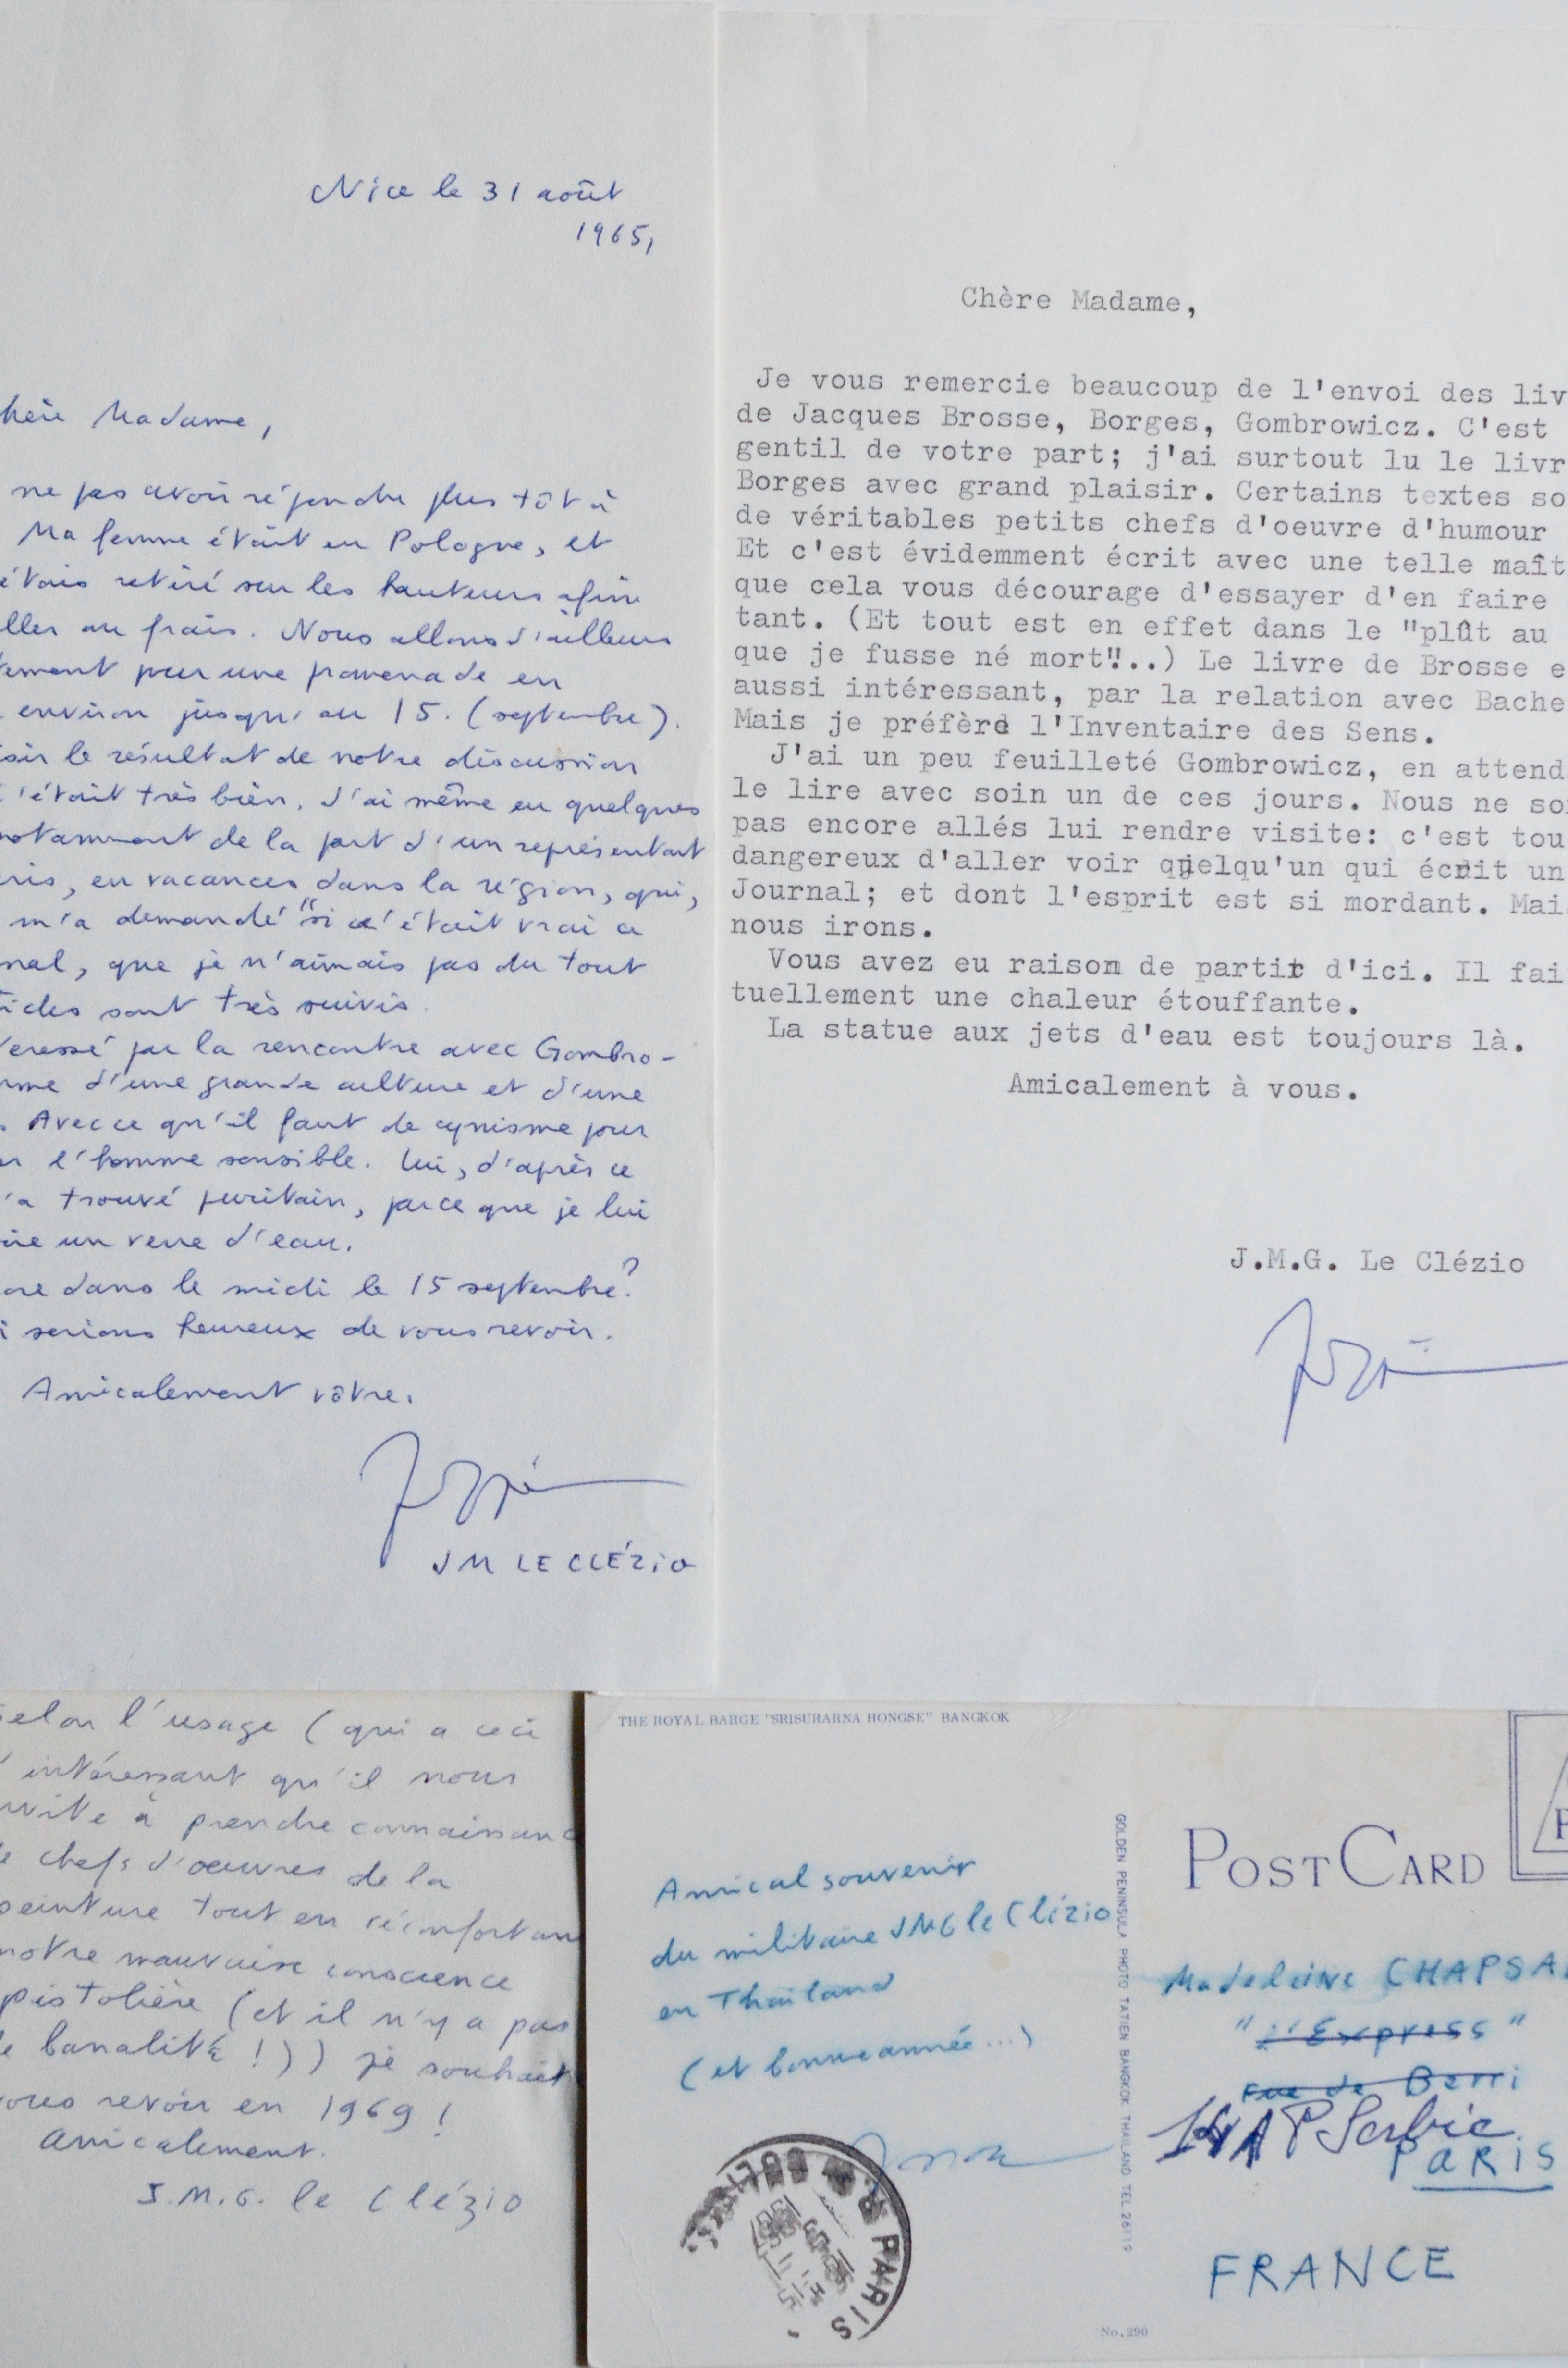 Nice le 31 août
1965,
hère Madame,
ne pas avoir répondu plus tôt à
Ma femme était en Pologne, et
étais retiré sur les hauteurs afin
ller au frais. Nous allons d'ailleurs
ement pour une promenade en
environ jusqu'au 15. (septembre).
sir le résultat de notre discussion
c'était très bien. J'ai même eu quelques
notamment de la part d'un représentant
ris, en vacances dans la région, qui,
m'a demandé "si c'était vrai ce
nal, que je n'aimais pas du tout
ticles sont très suivis.
éressé par la rencontre avec Gombro-
me d'une grande culture et d'une
. Avec ce qu'il faut de cynisme pour
r l'homme sensible. Lui, d'après ce
'a trouvé puritain, parce que je lui
ire un verre d'eau.
ore dans le midi le 15 septembre?
i serions heureux de vous revoir.
Amicalement vôtre.
J M LE CLÉZIO
Chère Madame,
Je vous remercie beaucoup de l'envoi des liv
de Jacques Brosse, Borges, Gombrowicz. C'est
gentil de votre part; j'ai surtout lu le livr
Borges avec grand plaisir. Certains textes so
de véritables petits chefs d'oeuvre d'humour
Et c'est évidemment écrit avec une telle maît
que cela vous décourage d'essayer d'en faire
tant. (Et tout est en effet dans le "plût au
que je fusse né mort"!..) Le livre de Brosse e
aussi intéressant, par la relation avec Bache
Mais je préfère l'Inventaire des Sens.
J'ai un peu feuilleté Gombrowicz, en attend
le lire avec soin un de ces jours. Nous ne so
pas encore allés lui rendre visite: c'est tou
dangereux d'aller voir quelqu'un qui écrit un
Journal; et dont l'esprit est si mordant. Mai
nous irons.
Vous avez eu raison de partir d'ici. Il fai
tuellement une chaleur étouffante.
La statue aux jets d'eau est toujours là.
Amicalement à vous.
J.M.G. Le Clézio
elon l'usage (qui a ceci
intéressant qu'il nous
vite à prendre connaissanc
e chefs d'oeuvres de la
peinture tout en réconfortan
notre mauvaise conscience
pistolière (et il n'y a pas
e banalité !)) je souhait
ous revoir en 1969 !
Amicalement.
J.M.G. le Clézio
THE ROYAL BARGE "SRISURARNA HONGSE" BANGKOK
Amical souvenir
du militaire JMG le Clézio
en Thaïland
(et bonne année...)
GOLDEN PENINSULA PHOTO TATIEN BANGKOK THAILAND TEL 26119
POSTCARD
P
Madeleine CHAPSA
"L'Express"
rue de Berri
P Serbie
PARIS
FRANCE
PARIS
No.290